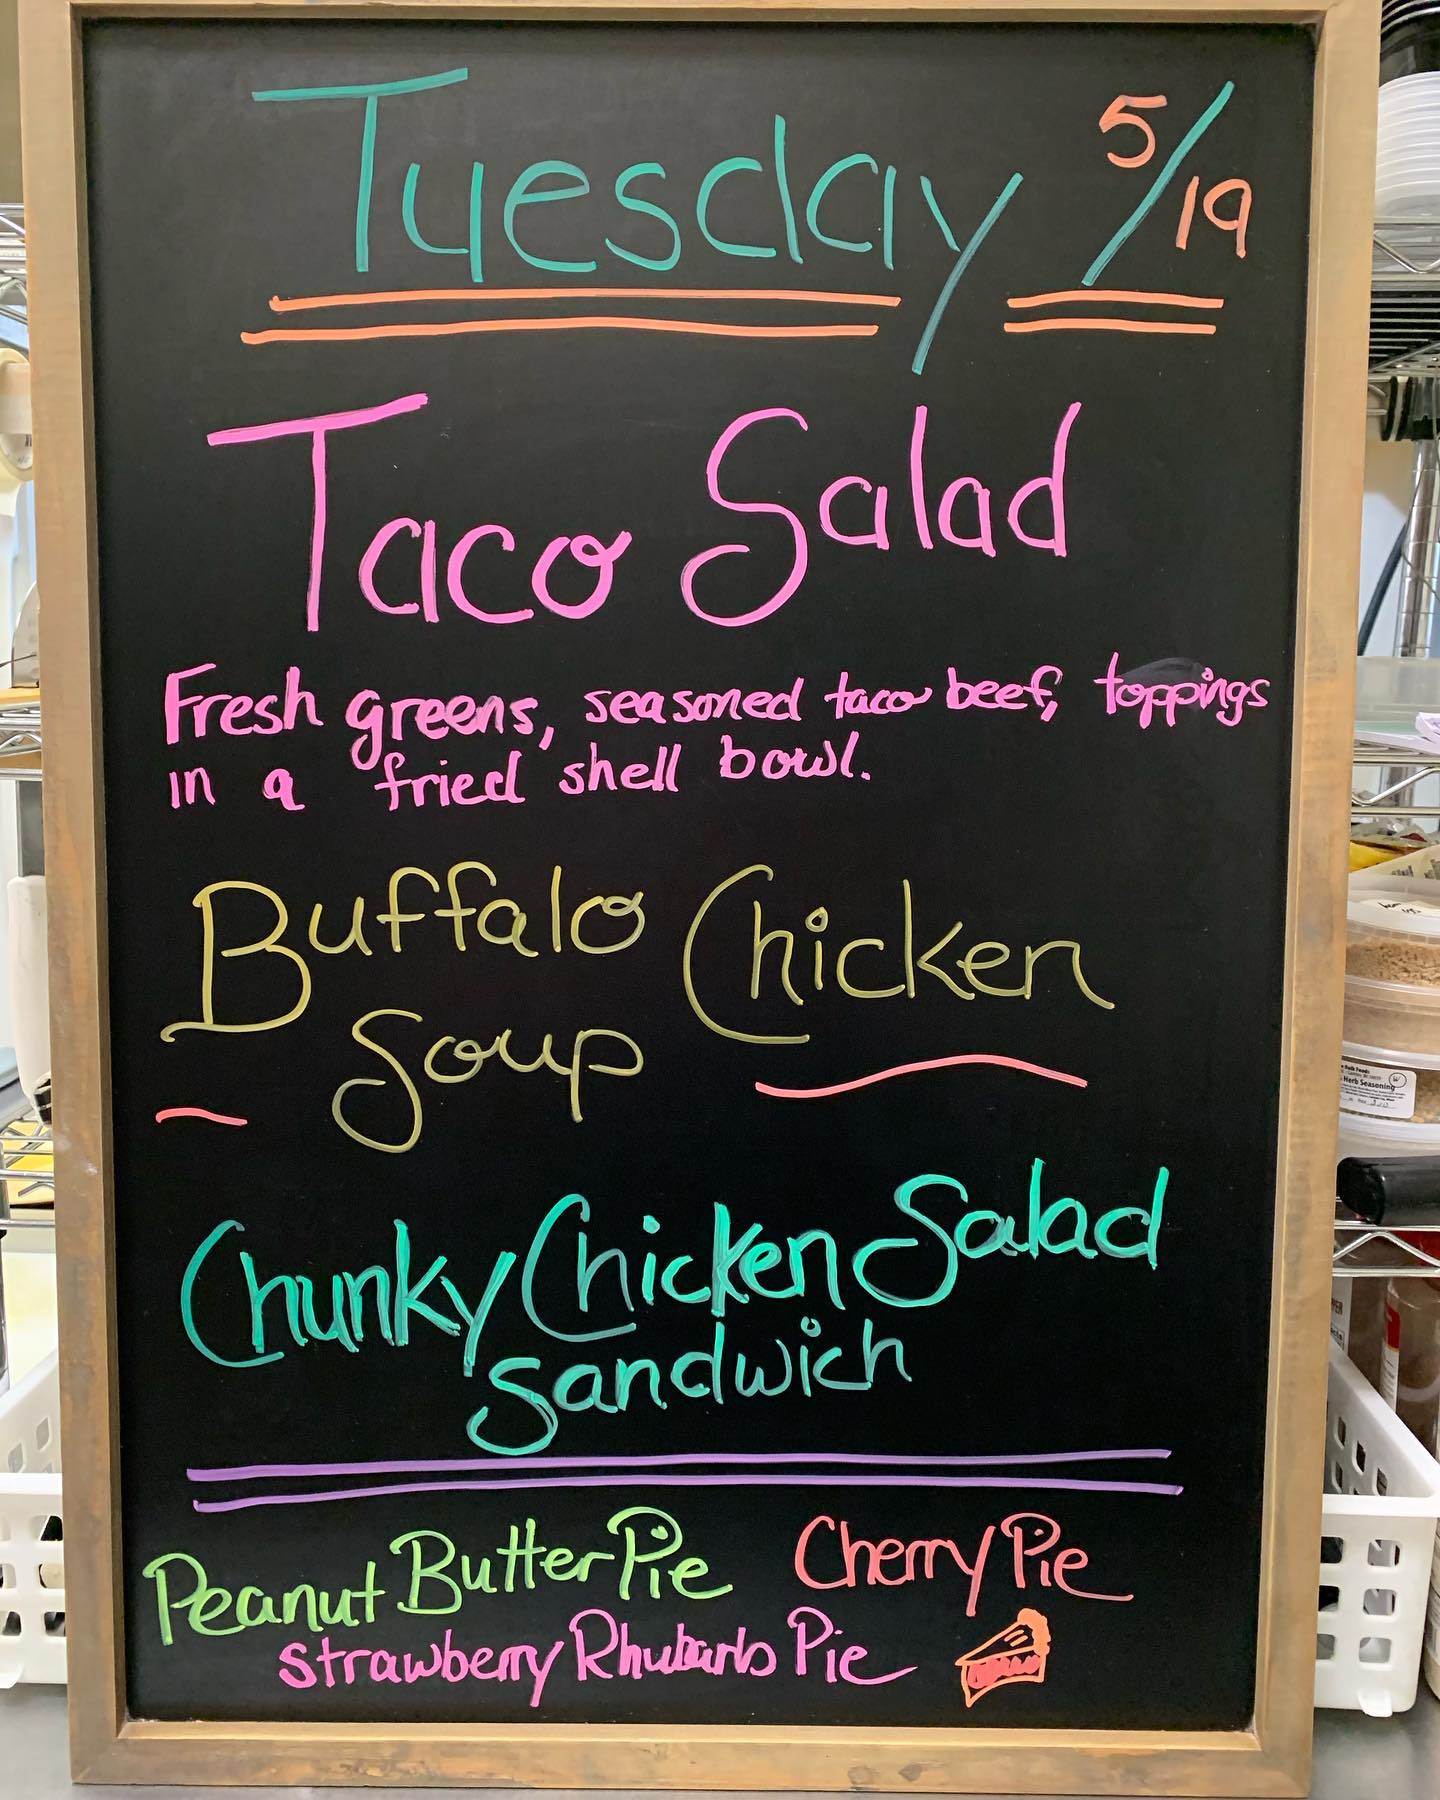 Tuesday 5/19
Taco Salad
Fresh greens, seasoned taco beef, toppings
in a fried shell bowl.
Buffalo Chicken
Soup
Chunky Chicken Salad
Sandwich
Peanut Butter Pie Cherry Pie
Strawberry Rhubarb Pie
Bulk Foods
Herb Seasoning